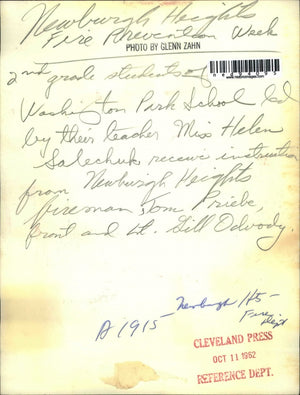 Newburgh Heights
Fire Prevention Week
PHOTO BY GLENN ZAHN
2nd grade students of
Washington Park School led
by their teacher Miss Helen
receive instruction
from Newburgh Heights
fireman, Tom Priebe,
front and Lt. Bill Odvody.
Newburgh Hts -
Fire
Dept
A 1915 -
CLEVELAND PRESS
OCT 11 1962
REFERENCE DEPT.